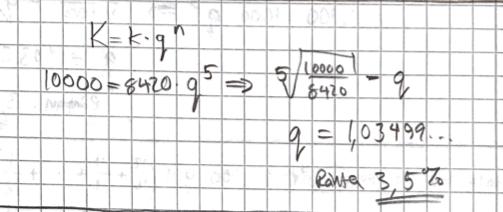 K = k · qⁿ
10000 = 8420 · q⁵ ⇒ ⁵√(10000/8420) = q
q = 1,03499...
Ränta 3,5%